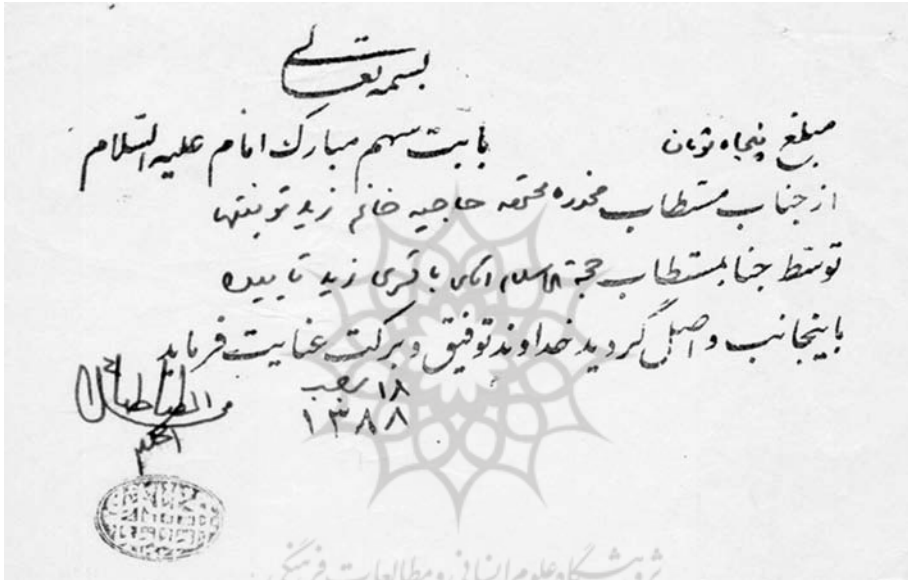 بسمه تعالی
مبلغ پنجاه تومان بابت سهم مبارک امام علیه السلام
از جناب مستطاب مخدره محترمه حاجیه خانم زید توفیقها
توسط جناب مستطاب حجة الاسلام آقای باقری زید تأییده
باینجانب واصل گردید خداوند توفیق و برکت عنایت فرماید
۱۸ رجب
۱۳۸۸
الطباطبائی
الحکیم
پژوهشگاه علوم انسانی و مطالعات فرهنگی